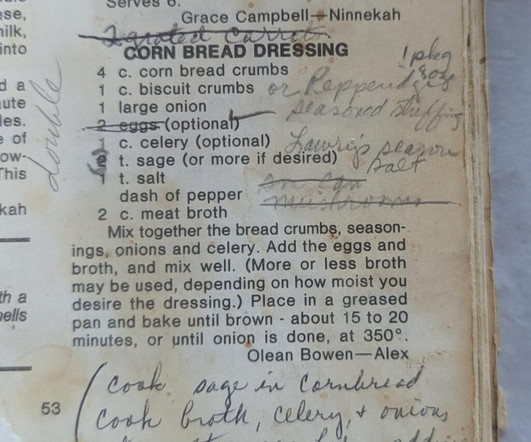 Serves 6.
Grace Campbell—Ninnekah
2 grated carrots
CORN BREAD DRESSING
1 pkg
8 oz
4 c. corn bread crumbs
1 c. biscuit crumbs or Pepperidge
1 large onion seasoned stuffing
2 eggs (optional)
1 c. celery (optional) Lawry's season
salt
t. sage (or more if desired)
1 t. salt
dash of pepper
mushrooms
2 c. meat broth
Mix together the bread crumbs, season-
ings, onions and celery. Add the eggs and
broth, and mix well. (More or less broth
may be used, depending on how moist you
desire the dressing.) Place in a greased
pan and bake until brown - about 15 to 20
minutes, or until onion is done, at 350°.
Olean Bowen—Alex
double
ese,
milk,
into
d a
nute
les.
e of
ow-
This
kah
th a
hells
53
(cook sage in cornbread
cook broth, celery, + onions